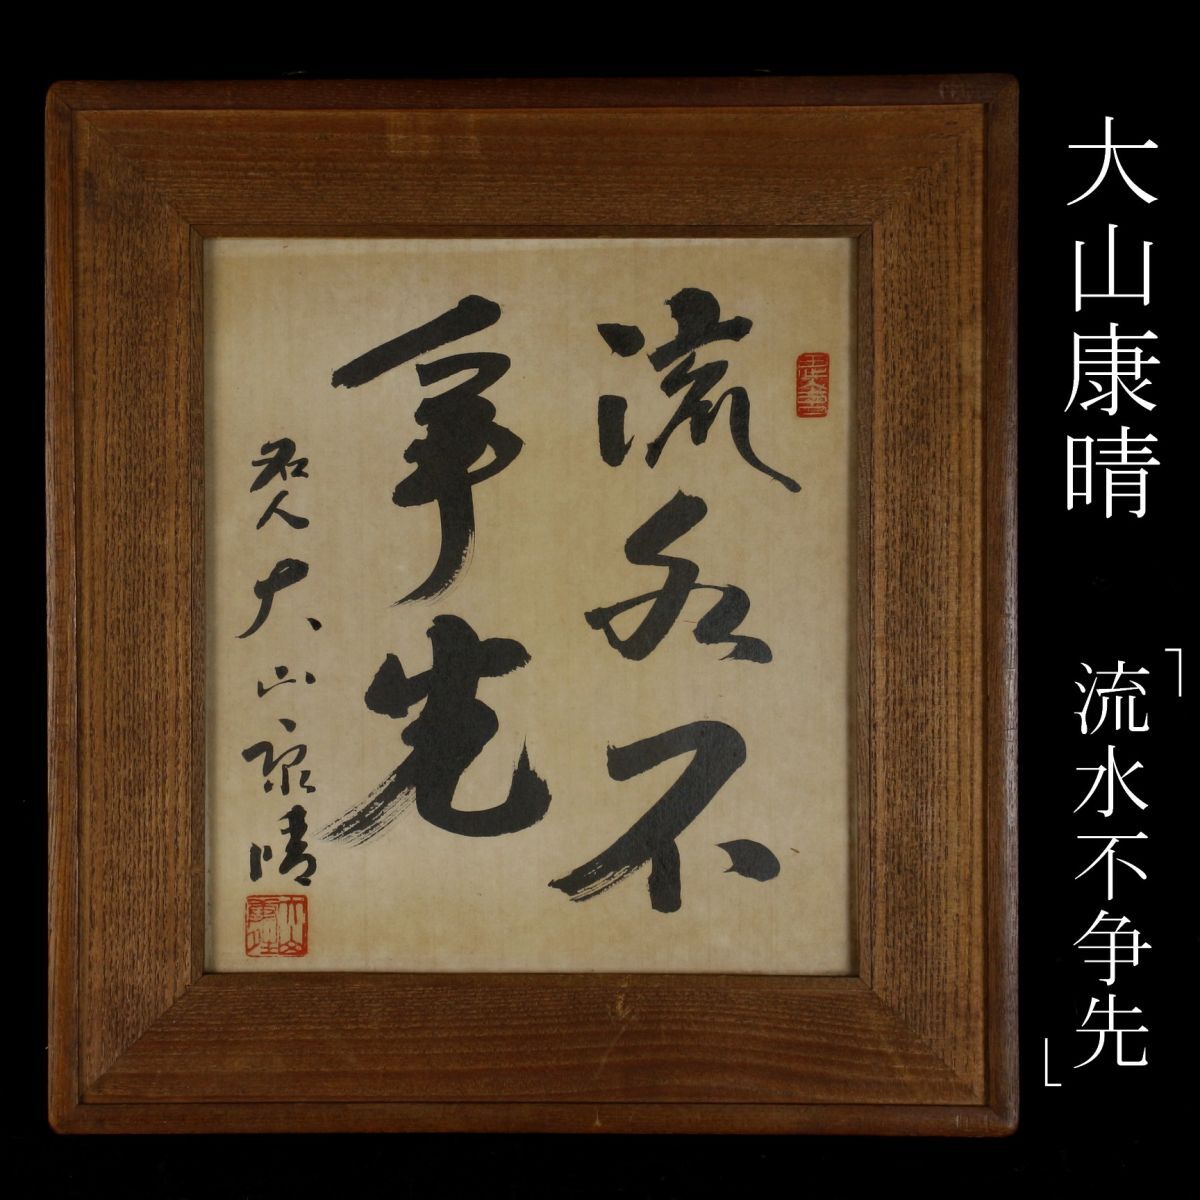 大山康晴
「流水不争先」
流水不
争先
名人 大山康晴